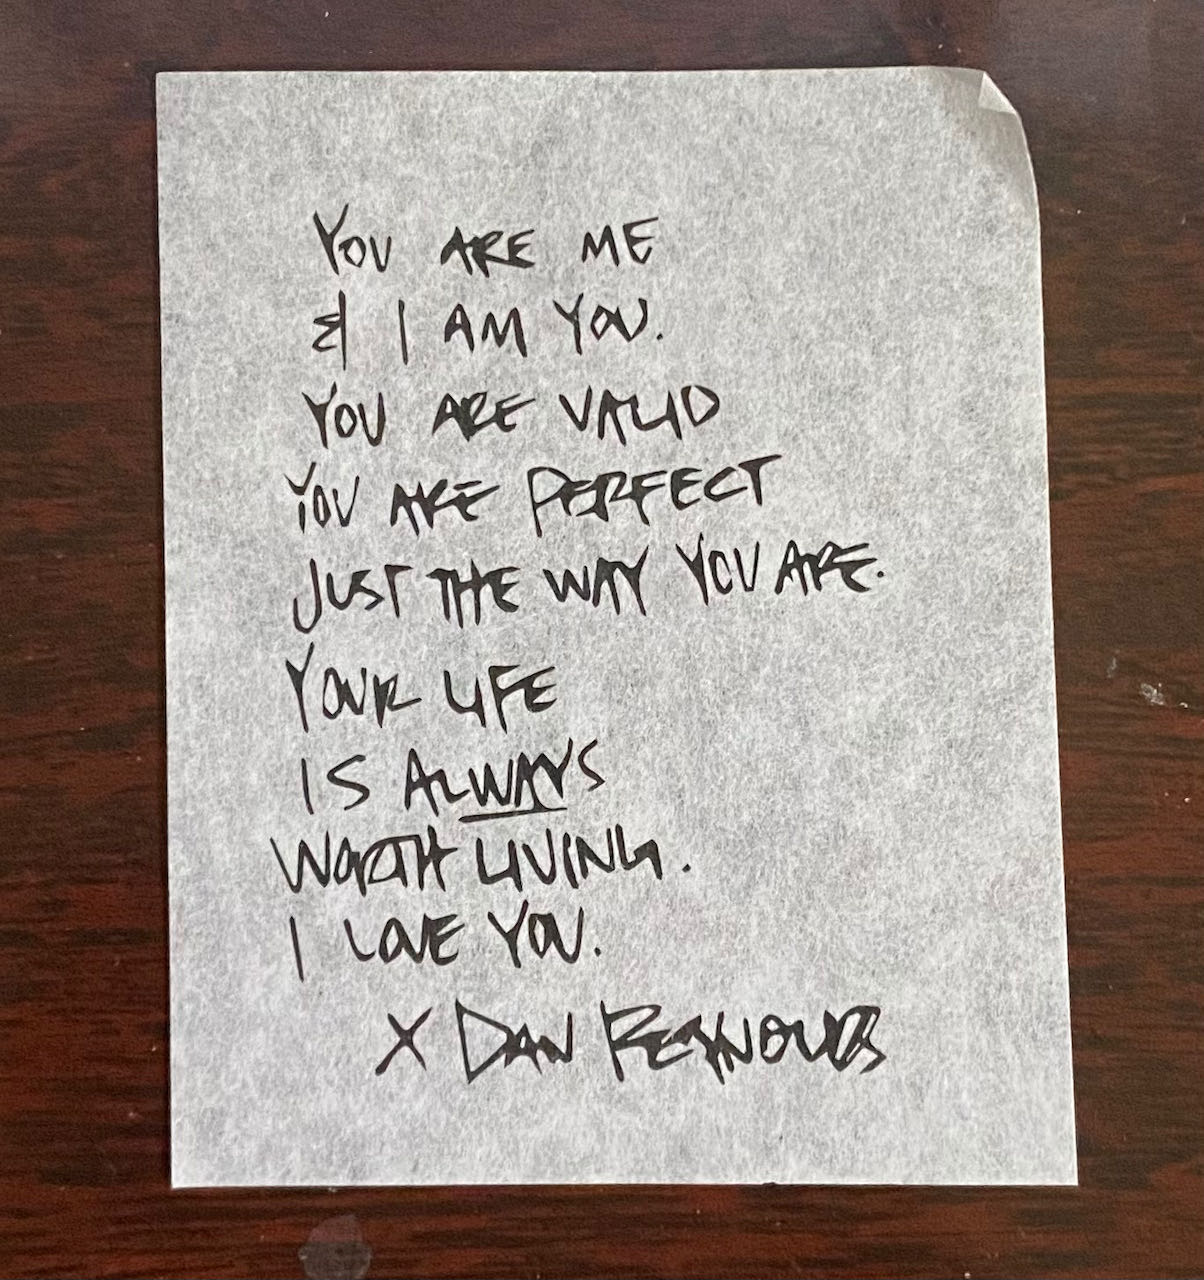 YOU ARE ME
& I AM YOU.
YOU ARE VALID
YOU ARE PERFECT
JUST THE WAY YOU ARE.
YOUR LIFE
IS ALWAYS
WORTH LIVING.
I LOVE YOU.
X DAN REYNOLDS